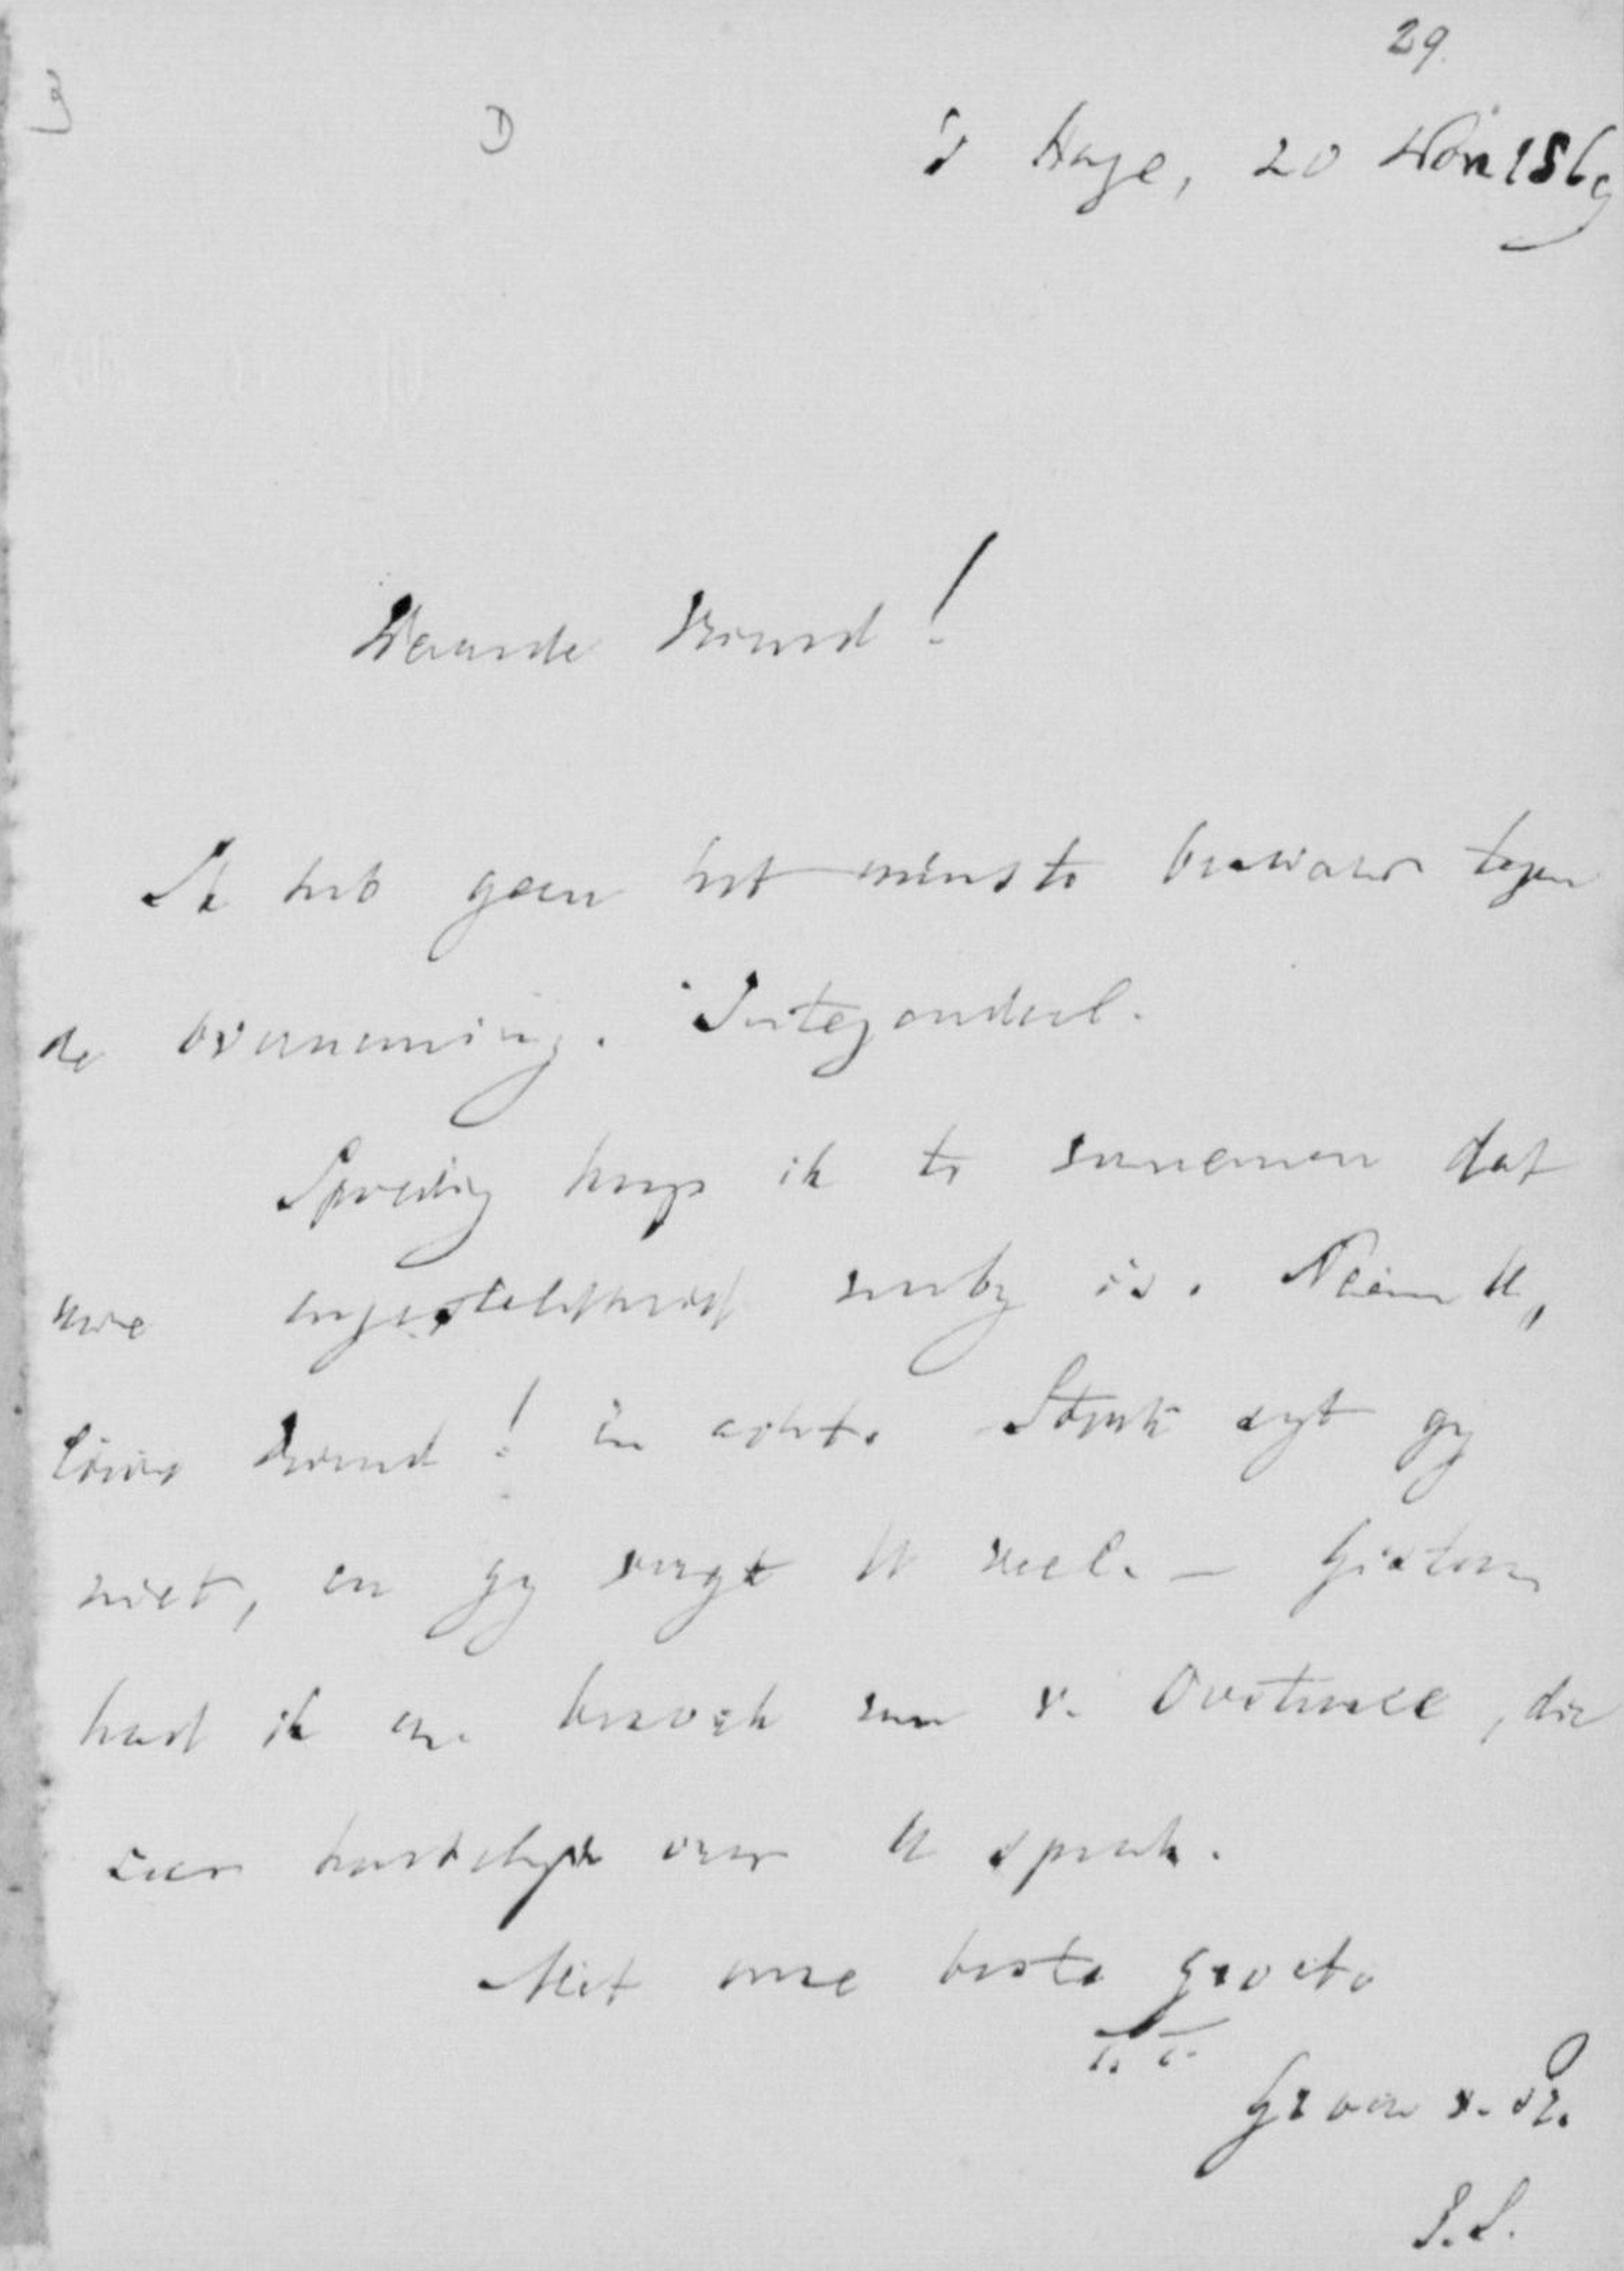 29.
D
's Hage, 20 Nov 1869
Waarde Vriend!
Ik heb geen het minste bezwaar tegen
de overneming. Integendeel.
Spoedig hoop ik te vernemen dat
uwe ongesteldheid voorby is. Neem U,
lieve vriend! in acht. Sterk zyt gy
niet, en gy vergt U veel. – Gisteren
had ik een bezoek van v. Oosterzee, die
zeer hartelyk over U sprak.
Met onze beste groete
T.T.
Groen v. Pr.